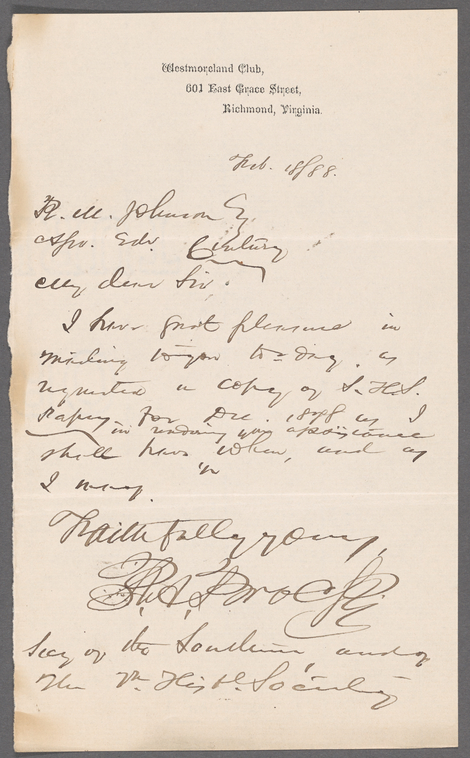 Westmoreland Club,
601 East Grace Street,
Richmond, Virginia.
Feb. 18/88.
R. U. Johnson Esq.
Asso. Edr. Century
My dear Sir:
I have great pleasure in
mailing to you to-day, as
requested a copy of S. H. S.
Papers for Dec. 1878 as I
in rendering you assistance
shall have when, and as
I may.
Faithfully yours,
R. A. Brock
Secy of the Southern and of
the Va Hist'l. Society